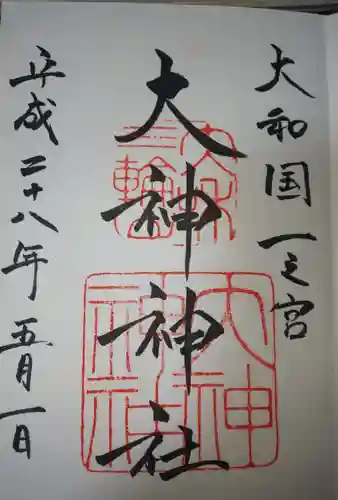 大和国一之宮
大神神社
平成二十八年五月一日
三輪
大神神社